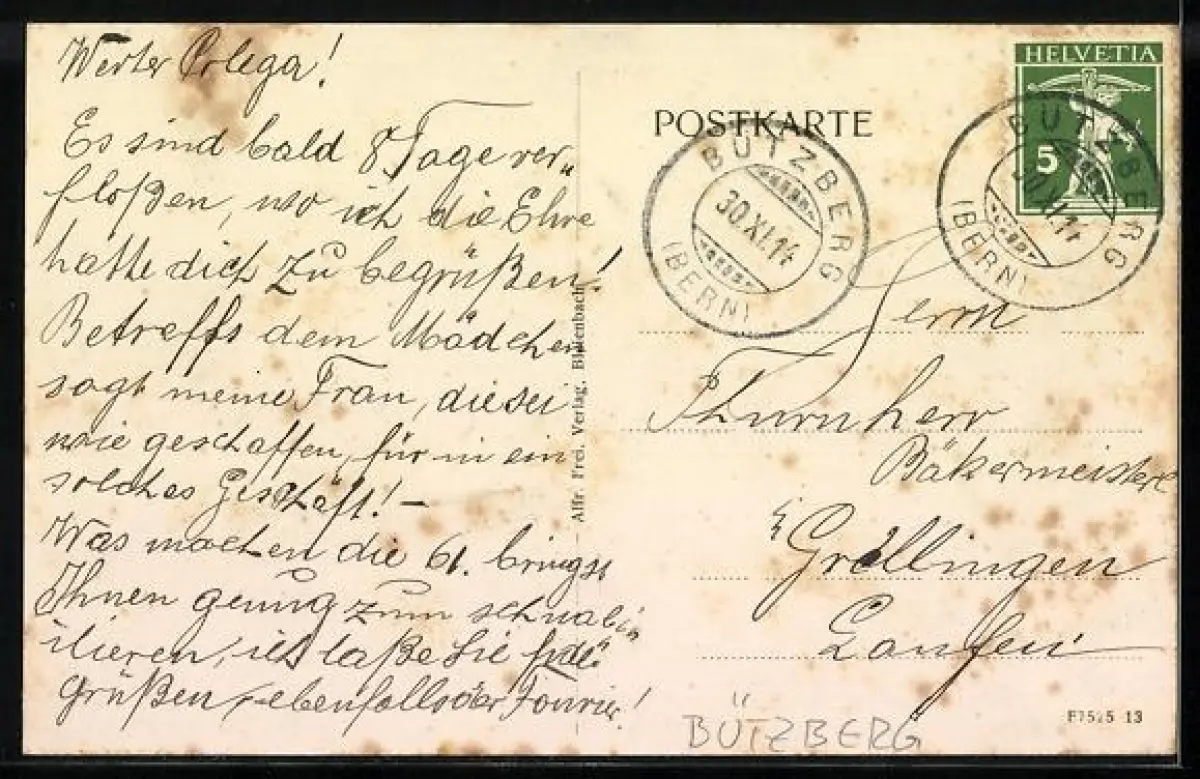 Werter Colega!
Es sind bald 8 Tage ver„
floßen, wo ich die Ehre
hatte dich zu begrüßen!
Betreffs dem Mädchen
sagt meine Frau, die sei
wie geschaffen, für in ein
solches Geschäft! –
Was machen die 61. bringst
Ihnen genug zum schnab
ilieren, ich laße Sie
Grüßen, ebenfalls der Fourier!
Alfr. Frei. Verlag.
POSTKARTE
HELVETIA
5
BÜTZBERG
30.XI.14
(BERN)
BÜTZBERG
30.XI.14
(BERN)
Herrn
Thurnherr
Bäkermeister
Gröllingen
Laufen
F7525 13
BÜTZBERG